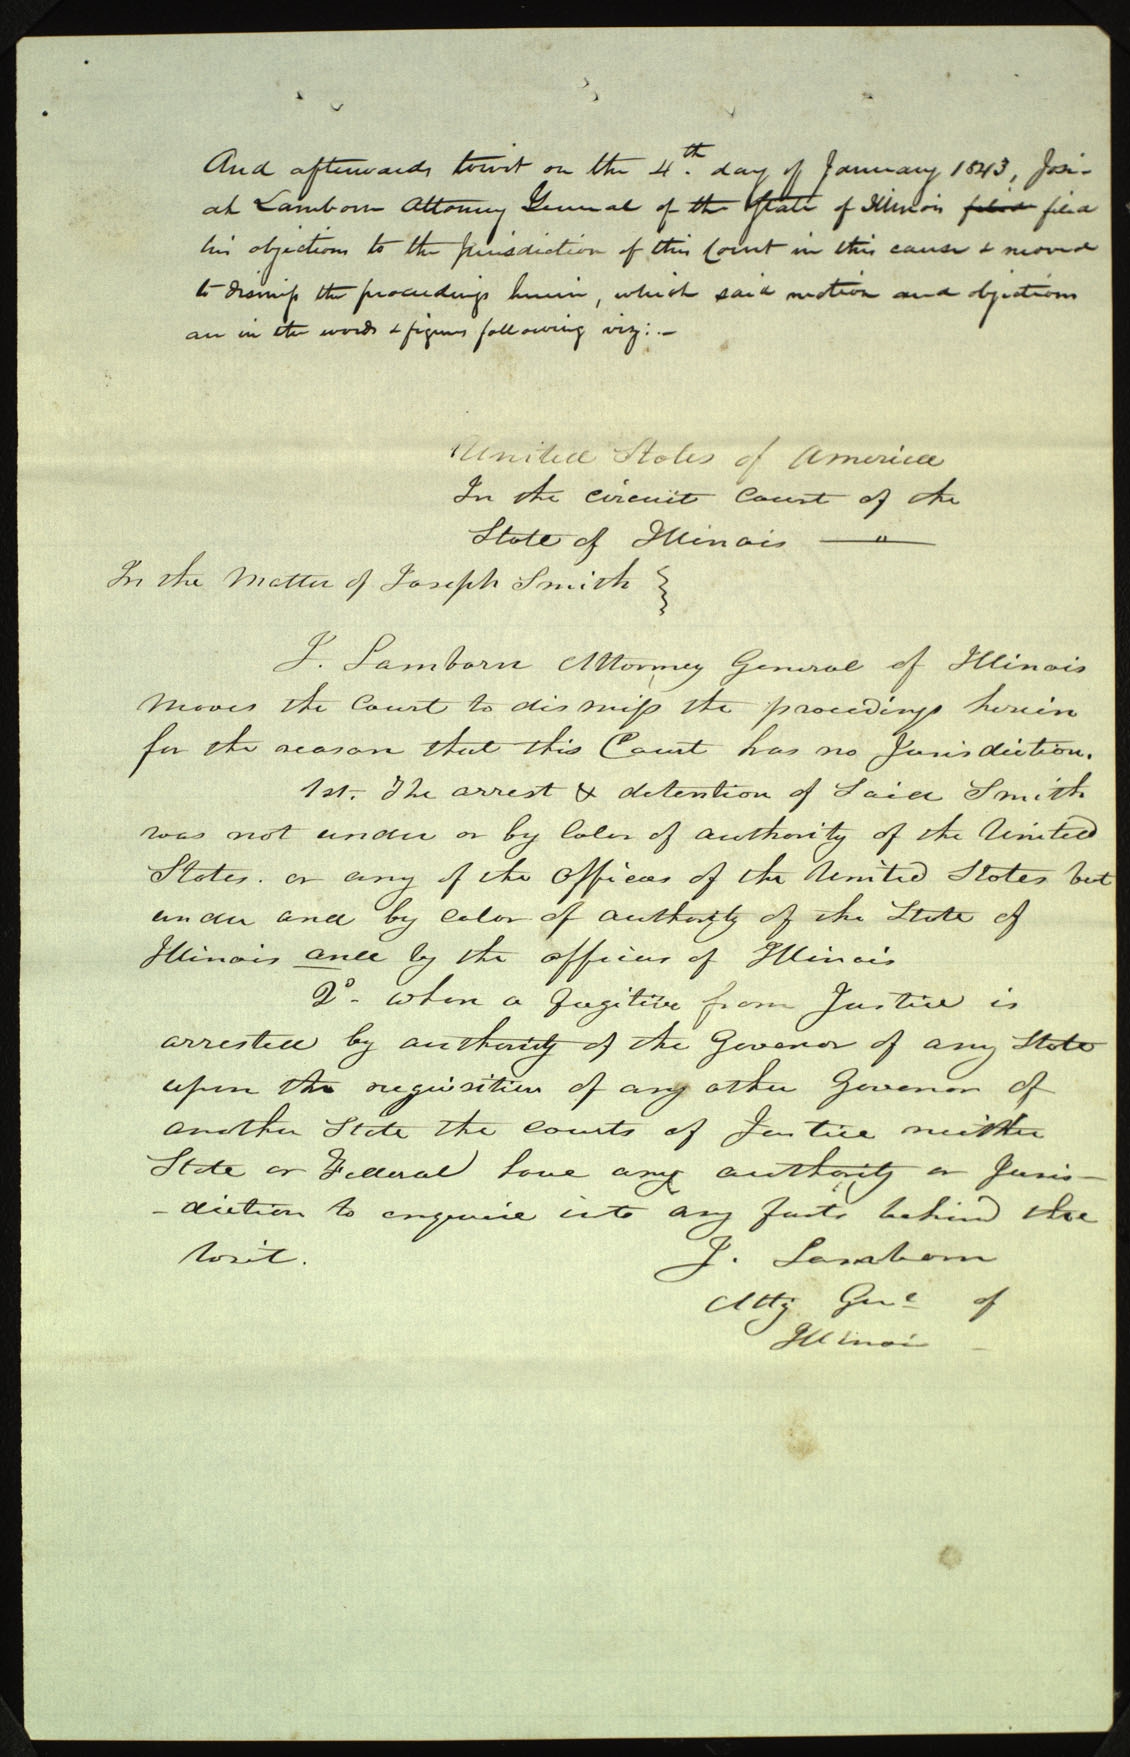 And afterwards towit on the 4th. day of January 1843, Josi-
ah Lamborn Attorney General of the State of Illinois filed filed
his objections to the jurisdiction of this Court in this cause & moved
to dismiss the proceedings herein, which said motion and objections
are in the words & figures following viz: -
United States of America
In the circuit Court of the
State of Illinois — " —
In the Matter of Joseph Smith }
J. Lamborn Attorney General of Illinois
moves the Court to dismiss the proceedings herein
for the reason that this Court has no Jurisdiction.
1st. The arrest & detention of Said Smith
was not under or by Color of authority of the United
States. or any of the officers of the United States but
under and by color of authority of the State of
Illinois and by the officers of Illinois
2o- when a fugitive from Justice is
arrested by authority of the Govenor of any State
upon the requisition of any other Govenor of
another State the courts of Justice neither
State or Federal have any authority or Juris-
-diction to enquire into any facts behind the
writ.
J. Lamborn
Atty Genl of
Illinois